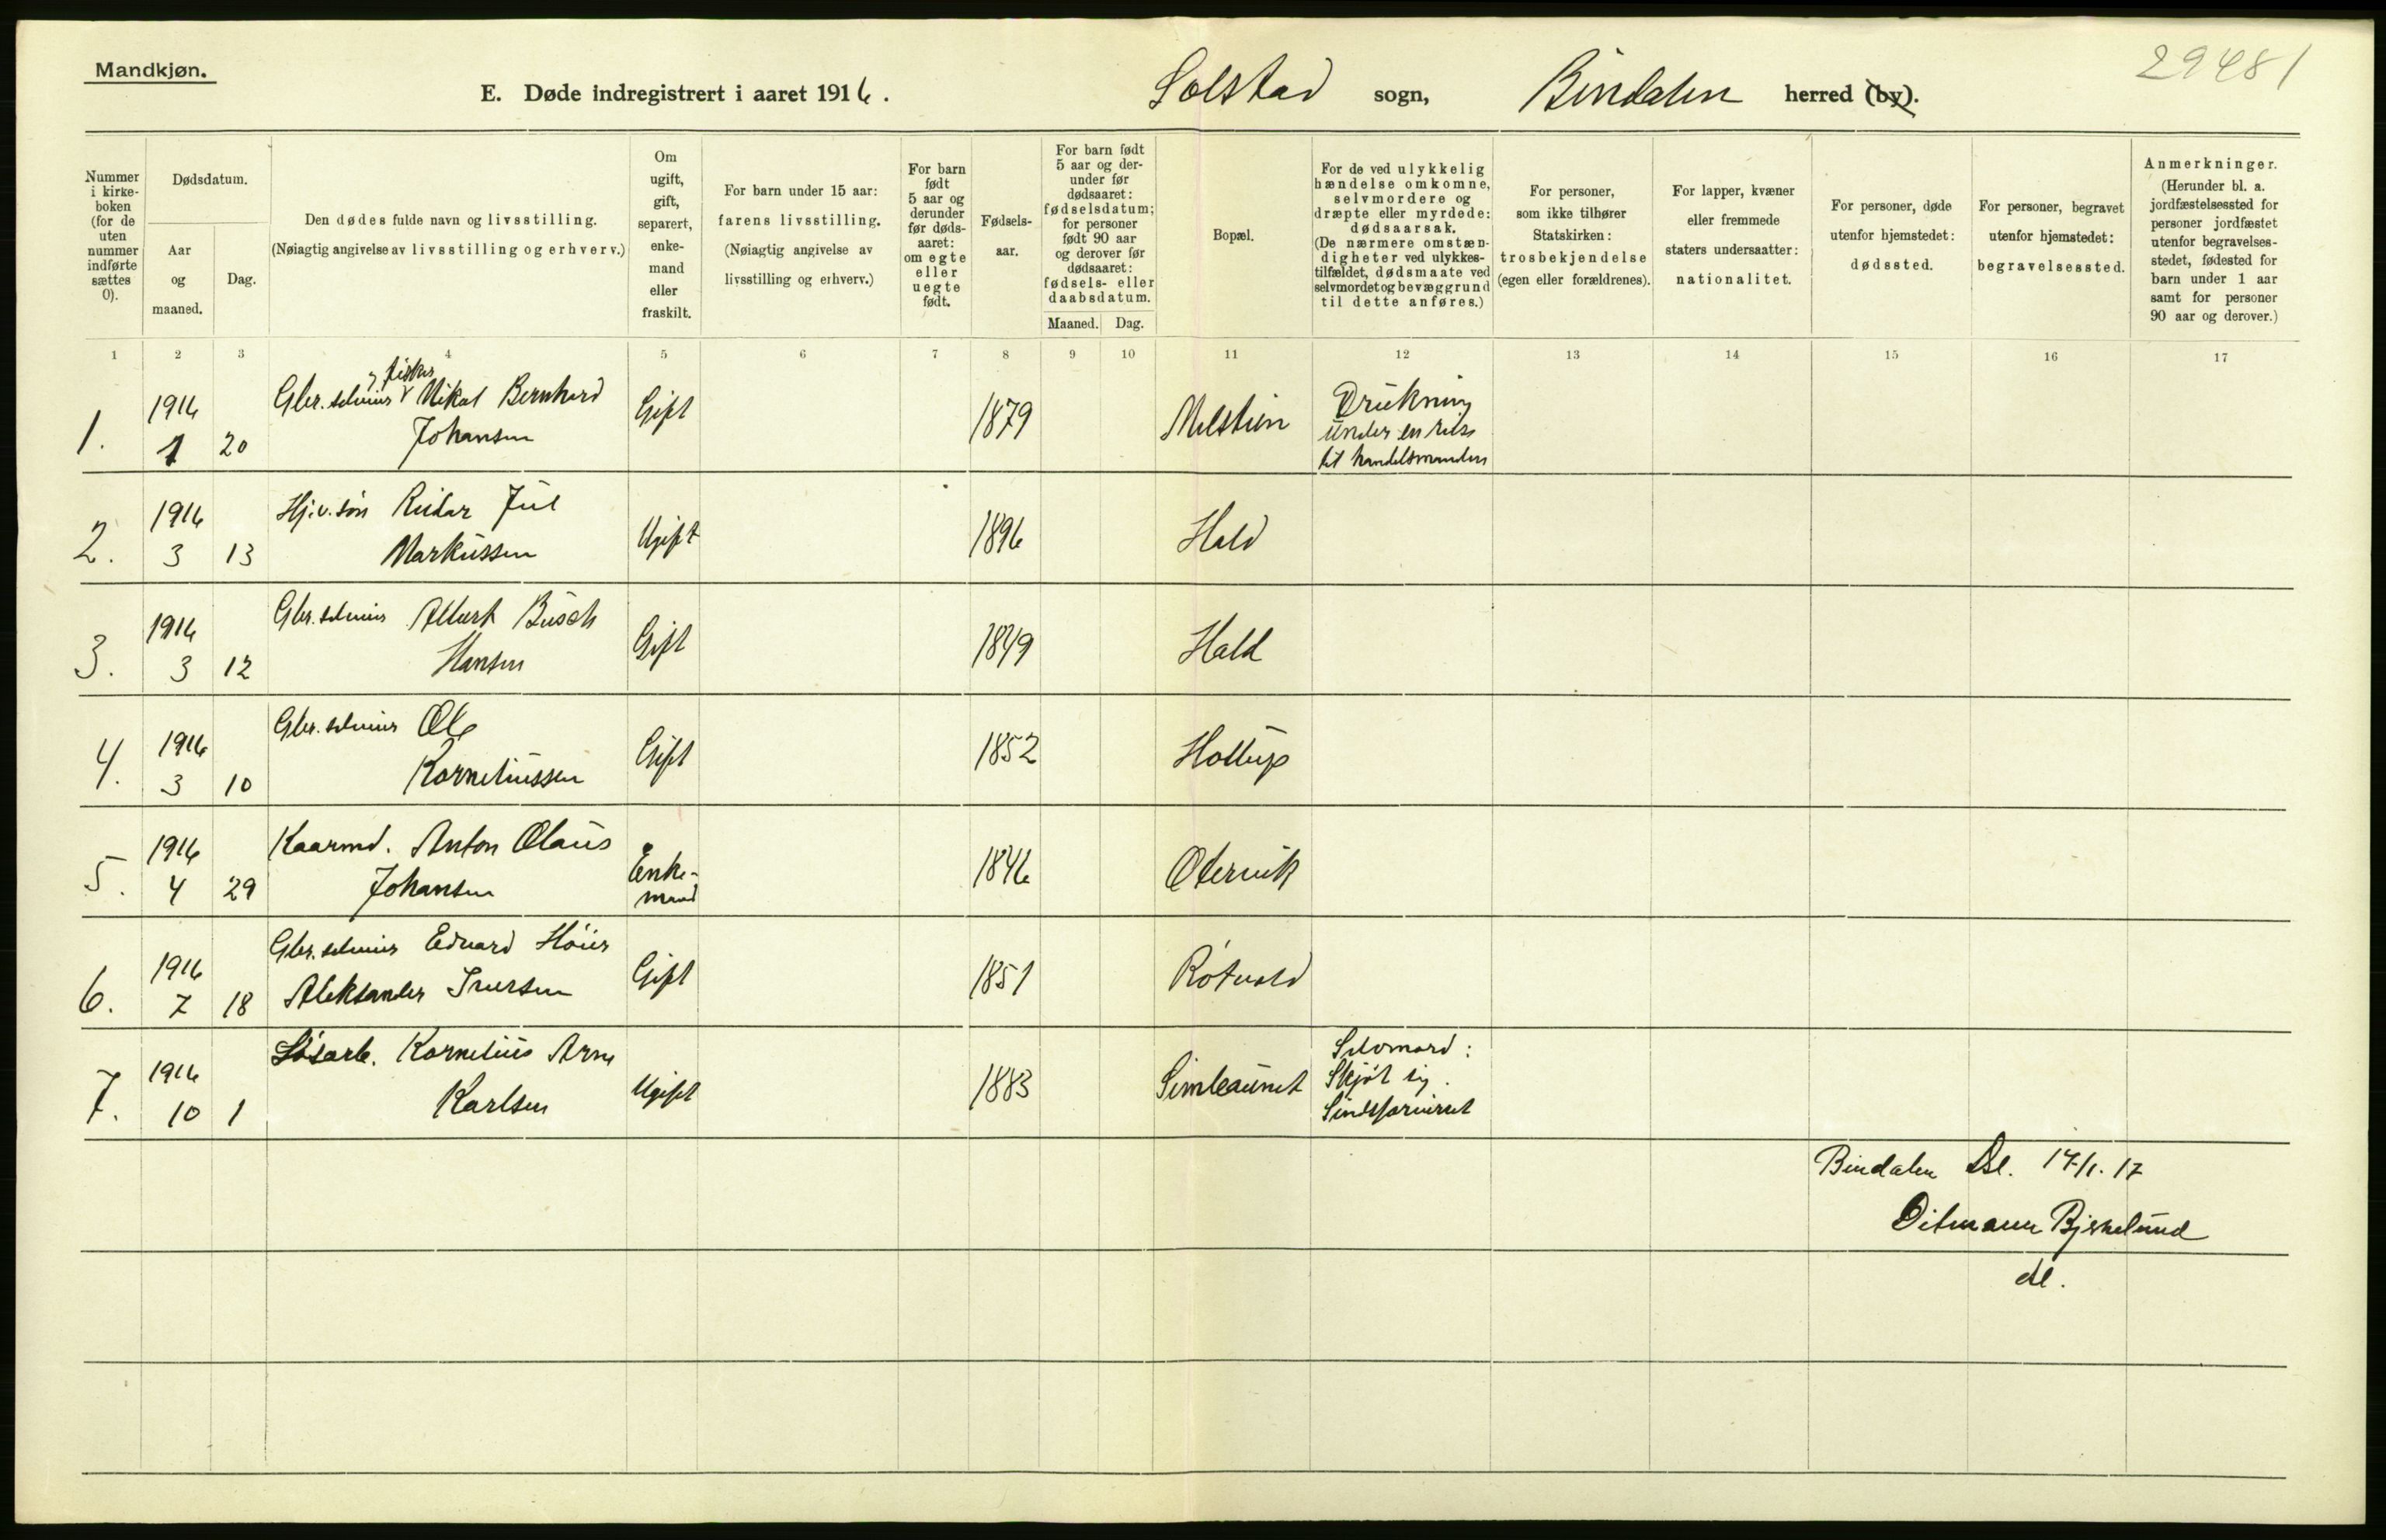 Mandkjøn.
29481
E. Døde indregistrert i aaret 1916. Solstad sogn, Bindalen herred (by).
Nummer i kirkeboken (for de uten nummer indførte sættes 0).
Dødsdatum.
Aar og maaned.
Dag.
Den dødes fulde navn og livsstilling.
(Nøiagtig angivelse av livsstilling og erhverv.)
Om ugift, gift, separert, enkemand eller fraskilt.
For barn under 15 aar:
farens livsstilling.
(Nøiagtig angivelse av livsstilling og erhverv.)
For barn født 5 aar og derunder før dødsaaret: om egte eller uegte født.
Fødselsaar.
For barn født 5 aar og derunder før dødsaaret: fødselsdatum; for personer født 90 aar og derover før dødsaaret: fødsels- eller daabsdatum.
Maaned. Dag.
Bopæl.
For de ved ulykkelig hændelse omkomne, selvmordere og dræpte eller myrdede: dødsaarsak.
(De nærmere omstændigheter ved ulykkestilfældet, dødsmaate ved selvmordet og bevæggrund til dette anføres.)
For personer, som ikke tilhører Statskirken: trosbekjendelse (egen eller forældrenes).
For lapper, kvæner eller fremmede staters undersaatter: nationalitet.
For personer, døde utenfor hjemstedet: dødssted.
For personer, begravet utenfor hjemstedet: begravelsessted.
Anmerkninger.
(Herunder bl. a. jordfæstelsessted for personer jordfæstet utenfor begravelsesstedet, fødested for barn under 1 aar samt for personer 90 aar og derover.)
1 2 3 4 5 6 7 8 9 10 11 12 13 14 15 16 17
1. 1916 1 20 Gbr. selveier & fisker Mikal Bernhard Johansen Gift 1879 Melstein Drukning under en reise til handelsmanden
2. 1916 3 13 Hj.v. søn Reidar Jul Markussen Ugift 1896 Hald
3. 1916 3 12 Gbr. selveier Albert Busch Hansen Gift 1849 Hald
4. 1916 3 10 Gbr. selveier Ole Korneliussen Gift 1852
5. 1916 4 29 Kaarmd. Anton Olaus Johansen Enkemand 1846 Otervik
6. 1916 7 18 Gbr. selveier Edvard Høier Aleksander Iversen Gift 1851 Røtvold
7. 1916 10 1 Løsarb. Kornelius Arne Karlsen Ugift 1883 Simleaunet Selvmord: Skjøt sig. Sindsforvirret
Bindalen 17/1. 17
Ditmann Bjirkelund